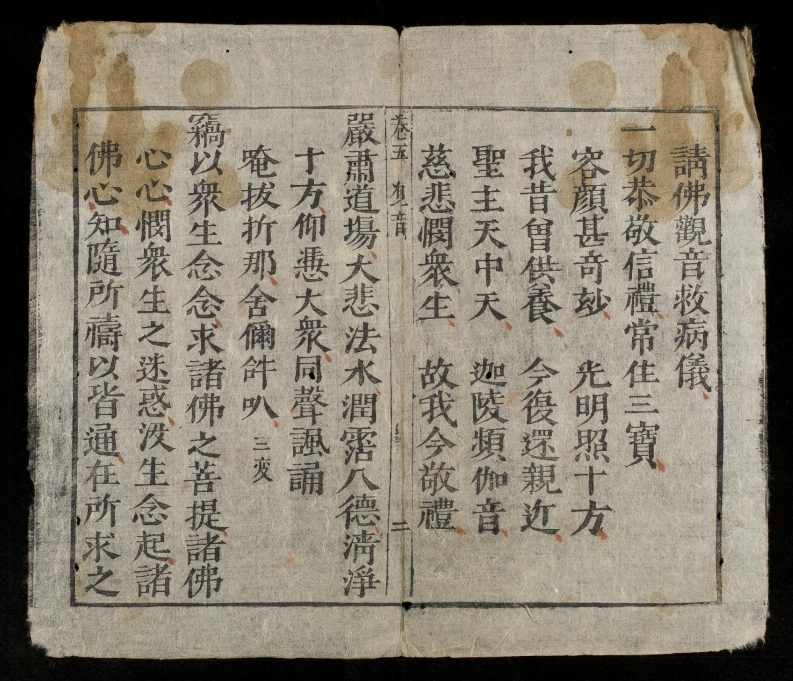 請佛觀音救病儀
一切恭敬信禮常住三寶
容顏甚奇玅 光明照十方
我昔曾供養 今復還親近
聖主天中天 迦陵頻伽音
慈悲憫衆生 故我今敬禮
卷五 觀音 二
嚴肅道場大悲法水潤霑八德淸淨
十方仰慿大衆同聲諷誦
唵拔折那舍僃䤈叭 三变
竊以衆生念念求諸佛之菩提諸佛
心心憫衆生之迷惑汲生念起諸
佛心知隨所禱以皆通在所求之